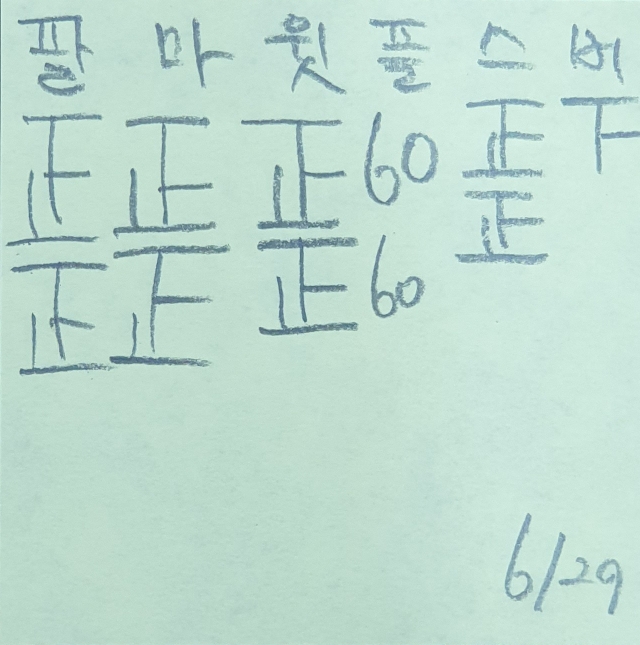 팔 마 윗 플 스 버
正 正 正 60 正 丅
正 正 正 60 正
6/29